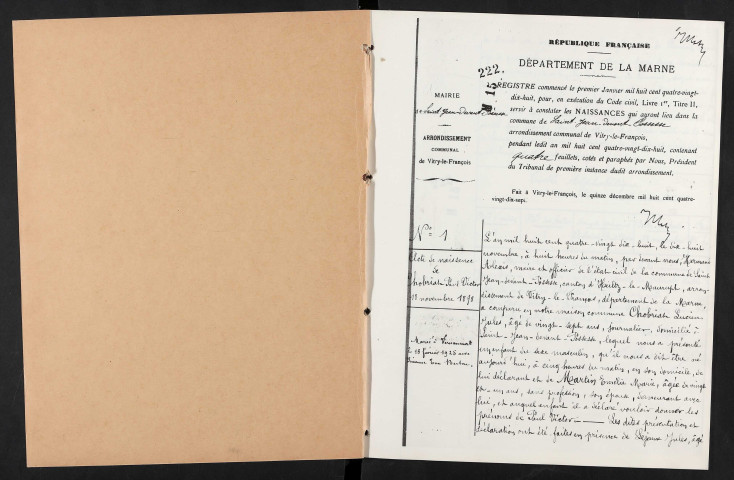 RÉPUBLIQUE FRANÇAISE
DÉPARTEMENT DE LA MARNE
222.
MAIRIE
de Saint Jean devant Possesse
ARRONDISSEMENT
COMMUNAL
de Vitry-le-François
REGISTRE commencé le premier Janvier mil huit cent quatre-vingt-
dix-huit, pour, en exécution du Code civil, Livre Ier, Titre II,
servir à constater les NAISSANCES qui auront lieu dans la
commune de Saint Jean devant Possesse
arrondissement communal de Vitry-le-François,
pendant ledit an mil huit cent quatre-vingt-dix-huit, contenant
quatre feuillets, cotés et paraphés par Nous, Président
du Tribunal de première instance dudit arrondissement.
Fait à Vitry-le-François, le quinze décembre mil huit cent quatre-
vingt-dix-sept.
No 1
Acte de naissance
de
Paul Victor
18 novembre 1898
Marié à
le 18 février 1925 avec
L'an mil huit cent quatre-vingt dix-huit, le dix-huit
novembre, à huit heures du matin, par devant nous,
maire et officier de l'état civil de la commune de Saint
Jean-devant-Possesse, canton d'Heiltz-le-Maurupt, arron-
dissement de Vitry-le-François, département de la Marne,
a comparu en notre maison commune
Jules, âgé de vingt-sept ans, journalier, domicilié à
Saint-Jean-devant-Possesse, lequel nous a présenté
un enfant du sexe masculin, qu'il nous a dit être né
aujourd'hui, à cinq heures du matin, en son domicile, de
lui déclarant et de Martin Marie, âgée de vingt
et-un ans, sans profession, son épouse, demeurant avec
lui, et auquel enfant il a déclaré vouloir donner les
prénoms de Paul Victor. Les dites présentation et
déclaration ont été faites en présence de Jules, âgé